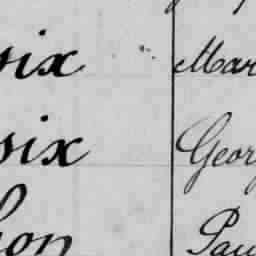 six Mar
six Geor
on Pau